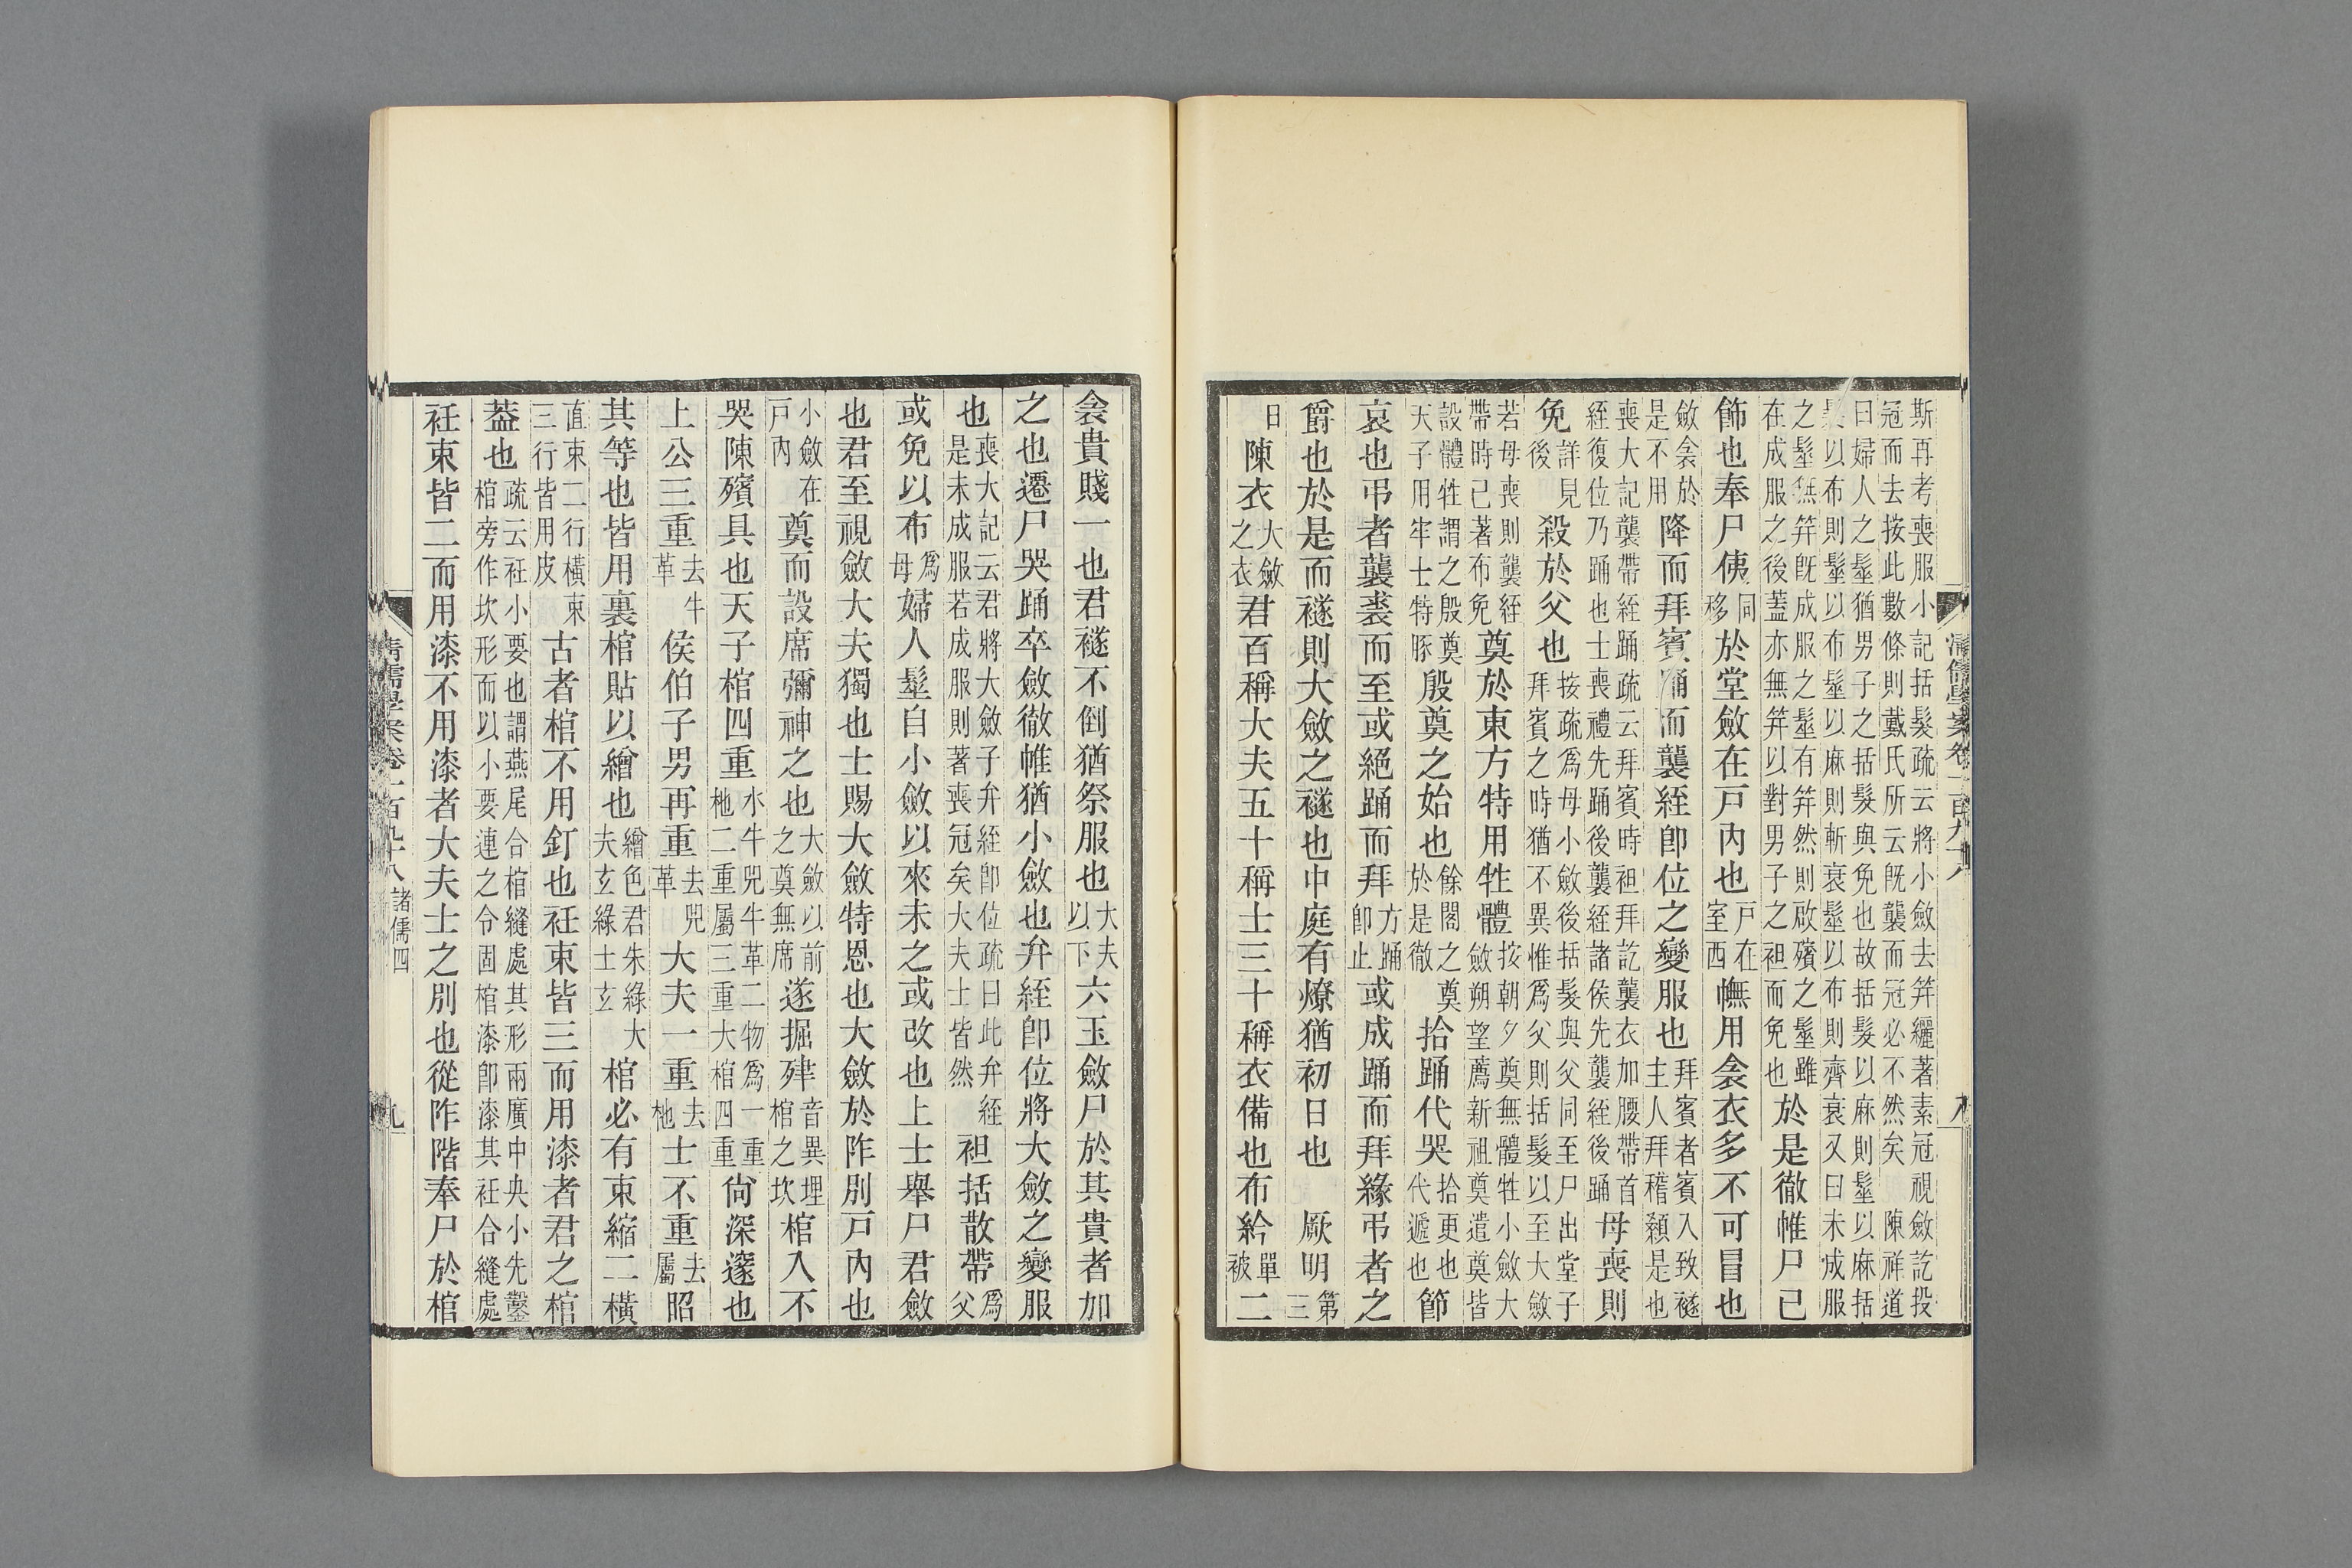 斯再考喪服小記括髮疏云將小斂去笄纚著素冠視斂訖投
冠而去按此數條則戴氏所云既襲而冠必不然矣 陳祥道
曰婦人之髽猶男子之括髮與免也故括髮以麻則髽以麻括
以布則髽以布髽以麻則斬衰髽以布則齊衰又曰未成服
之髽無笄既成服之髽有笄然則啟殯之髽雖
在成服之後蓋亦無笄以對男子之袒而免也於是徹帷尸已
飾也奉尸侇同移於堂斂在戶內也戶在室西幠用衾衣多不可冒也
斂衾於是不用降而拜賓踊而襲絰卽位之變服也拜賓者賓入致襚主人拜稽顙是也
喪大記襲帶絰踊疏云拜賓時袒拜訖襲衣加腰帶首
絰復位乃踊也士喪禮先踊後襲絰諸侯先襲絰後踊母喪則
免詳見後殺於父也按疏爲母小斂後括髮與父同至尸出堂子拜賓之時猶不異惟爲父則括髮以至大斂
若母喪則襲絰帶時已著布免奠於東方特用牲體按朝夕奠無體牲小斂大斂朔望薦新祖奠遣奠皆
設體牲謂之殷奠天子用牢士特豚殷奠之始也餘閣之奠於是徹拾踊代哭拾更也代遞也節
哀也弔者襲裘而至或絕踊而拜方踊卽止或成踊而拜緣弔者之
爵也於是而襚則大斂之襚也中庭有燎猶初日也 厥明第三
日陳衣大斂之衣君百稱大夫五十稱士三十稱衣備也布紟單被二
衾貴賤一也君襚不倒猶祭服也大夫以下六玉斂尸於其貴者加
之也遷尸哭踊卒斂徹帷猶小斂也弁絰卽位將大斂之變服
也喪大記云君將大斂子弁絰卽位疏曰此弁絰是未成服若成服則著喪冠矣大夫士皆然袒括散帶爲父
或免以布爲母婦人髽自小斂以來未之或改也上士舉尸君斂
也君至視斂大夫獨也士賜大斂特恩也大斂於阼別戶內也
小斂在戶內奠而設席彌神之也大斂以前之奠無席遂掘肂音異埋棺之坎棺入不
哭陳殯具也天子棺四重水牛兕牛革二物爲一重杝二重屬三重大棺四重尙深邃也
上公三重去牛革侯伯子男再重去兕革大夫一重去杝士不重去屬昭
其等也皆用裏棺貼以繒也繒色君朱綠大夫玄綠士玄棺必有束縮二橫
三直束二行橫束三行皆用皮古者棺不用釘也衽束皆三而用漆者君之棺
蓋也疏云衽小要也謂燕尾合棺縫處其形兩廣中央小先鑿棺旁作坎形而以小要連之令固棺漆卽漆其衽合縫處
衽束皆二而用漆不用漆者大夫士之別也從阼階奉尸於棺
清儒學案卷二百九十八 諸儒四
九